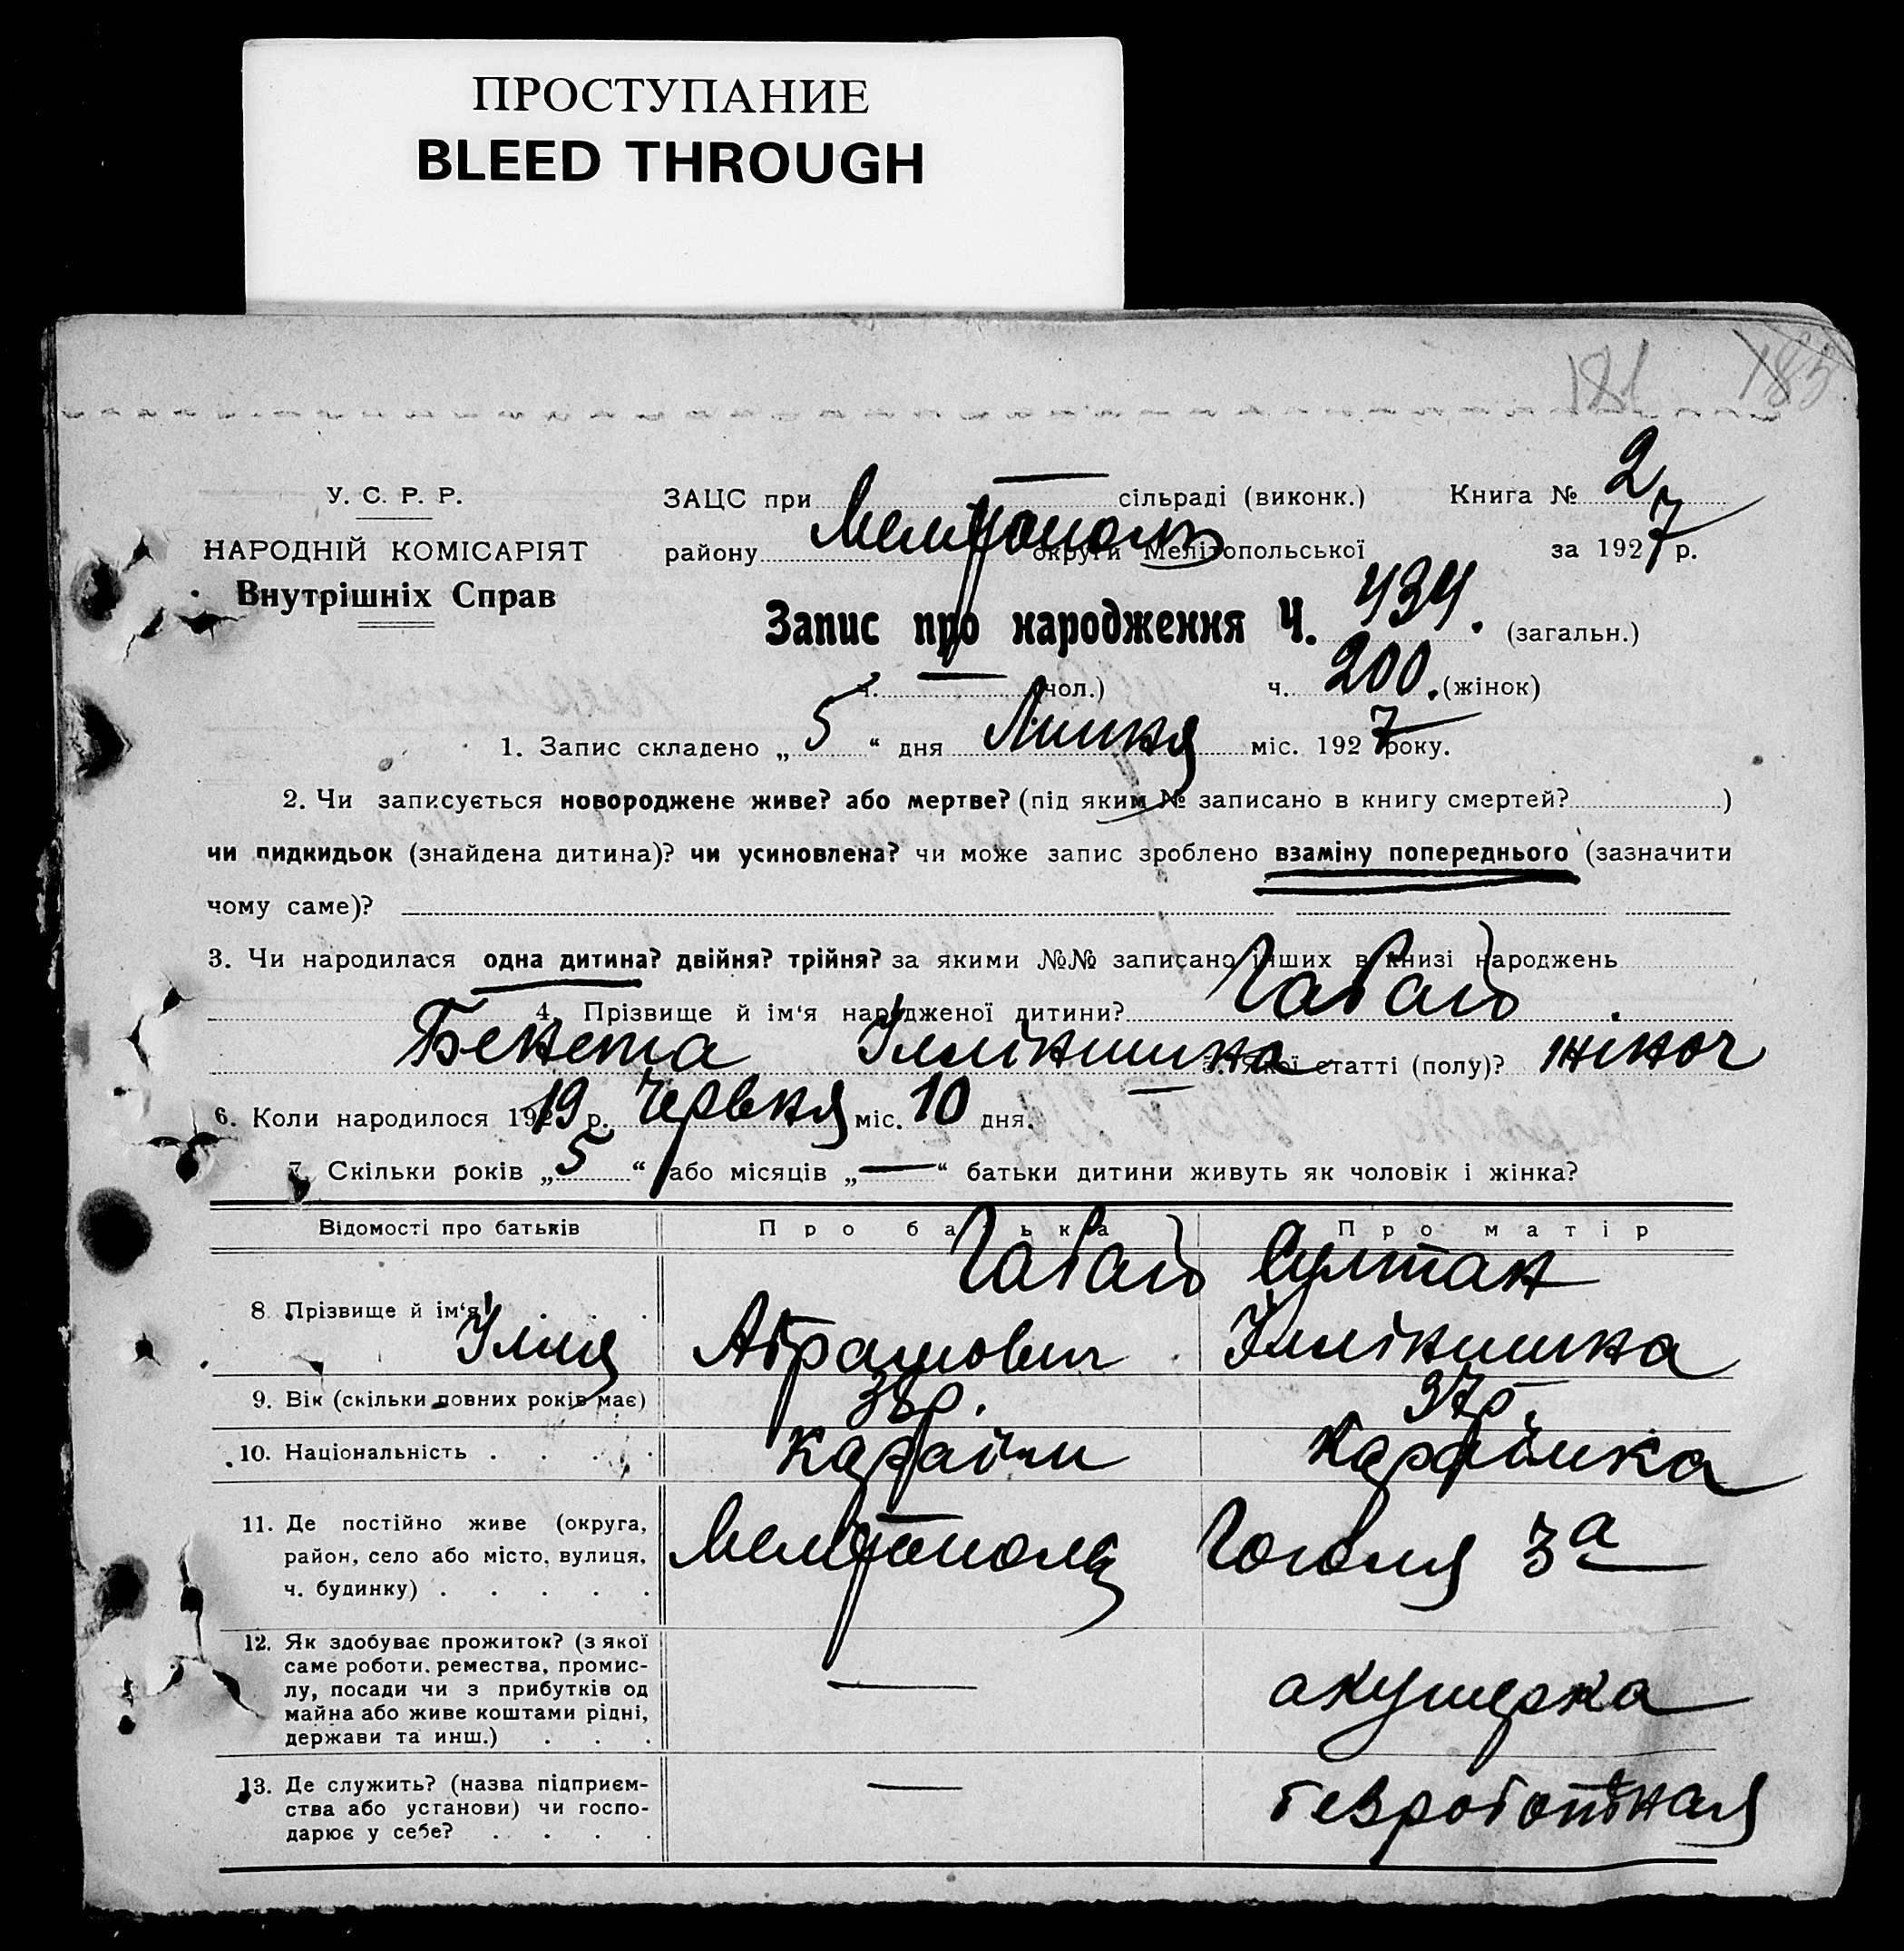 ПРОСТУПАНИЕ
BLEED THROUGH
181 183
У. С. Р. Р.
НАРОДНІЙ КОМІСАРІЯТ
Внутрішніх Справ
ЗАЦС при — сільраді (виконк.) Книга № 2
району Мелітополь округи Мелітопольської за 1927 р.
Запис про народження Ч. 434. (загальн.)
ч. — (чол.) ч. 200. (жінок)
1. Запис складено „ 5 “ дня Липня міс. 1927 року.
2. Чи записується новороджене живе? або мертве? (під яким № записано в книгу смертей? )
чи пидкидьок (знайдена дитина)? чи усиновлена? чи може запис зроблено взаміну попереднього (зазначити
чому саме)?
3. Чи народилася одна дитина? двійня? трійня? за якими №№ записано інших в книзі народжень
4. Прізвище й ім‘я народженої дитини? Габай
Бекета 5. Якої статті (полу)? жіноч
6. Коли народилося 1919 р. Червня міс. 10 дня.
7. Скільки років „ 5 “ або місяців „ — “ батьки дитини живуть як чоловік і жінка?
Відомості про батьків Про батька Про матір
Габай Султан
8. Прізвище й ім‘я
Ілля Абрамович
9. Вік (скільки повних років має) 38р. 37р.
10. Національність . . . . Караїм Караїмка
11. Де постійно живе (округа,
район, село або місто, вулиця,
ч. будинку) . . . . .
Мелітополь Гоголя 3а
12. Як здобуває прожиток? (з якої
саме роботи, ремества, промис-
лу, посади чи з прибутків од
майна або живе коштами рідні,
держави та инш.) . . .
— акушерка
13. Де служить? (назва підприєм-
ства або установи) чи госпо-
дарює у себе? . . . .
— безроботная